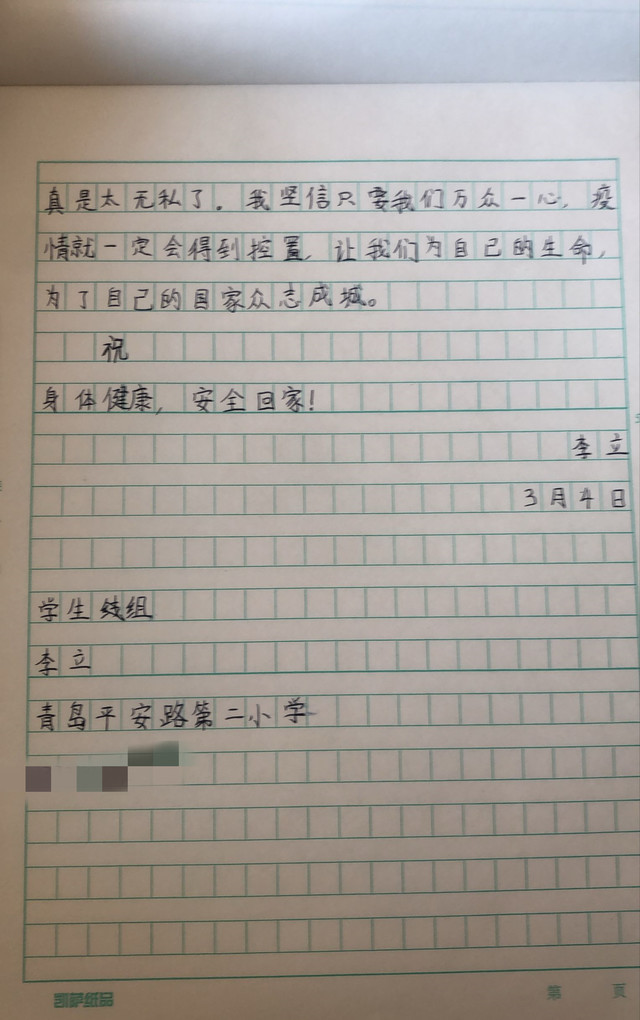 真是太无私了。我坚信只要我们万众一心，疫
情就一定会得到控置，让我们为自己的生命，
为了自己的国家众志成城。
祝
身体健康，安全回家！
李立
3月4日
学生线组
李立
青岛平安路第二小学
凯萨纸品
第 页